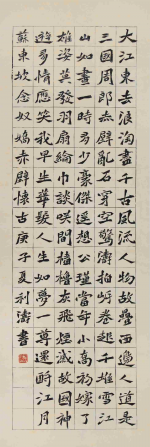 大江東去浪淘盡千古風流人物故壘西邊人道是
三國周郎赤壁亂石穿空驚濤拍岸卷起千堆雪江
山如畫一時多少豪傑遙想公瑾當年小喬初嫁了
雄姿英發羽扇綸巾談笑間檣櫓灰飛煙滅故國神
遊多情應笑我早生華髮人生如夢一尊還酹江月
蘇東坡念奴嬌赤壁懷古庚子夏利濤書